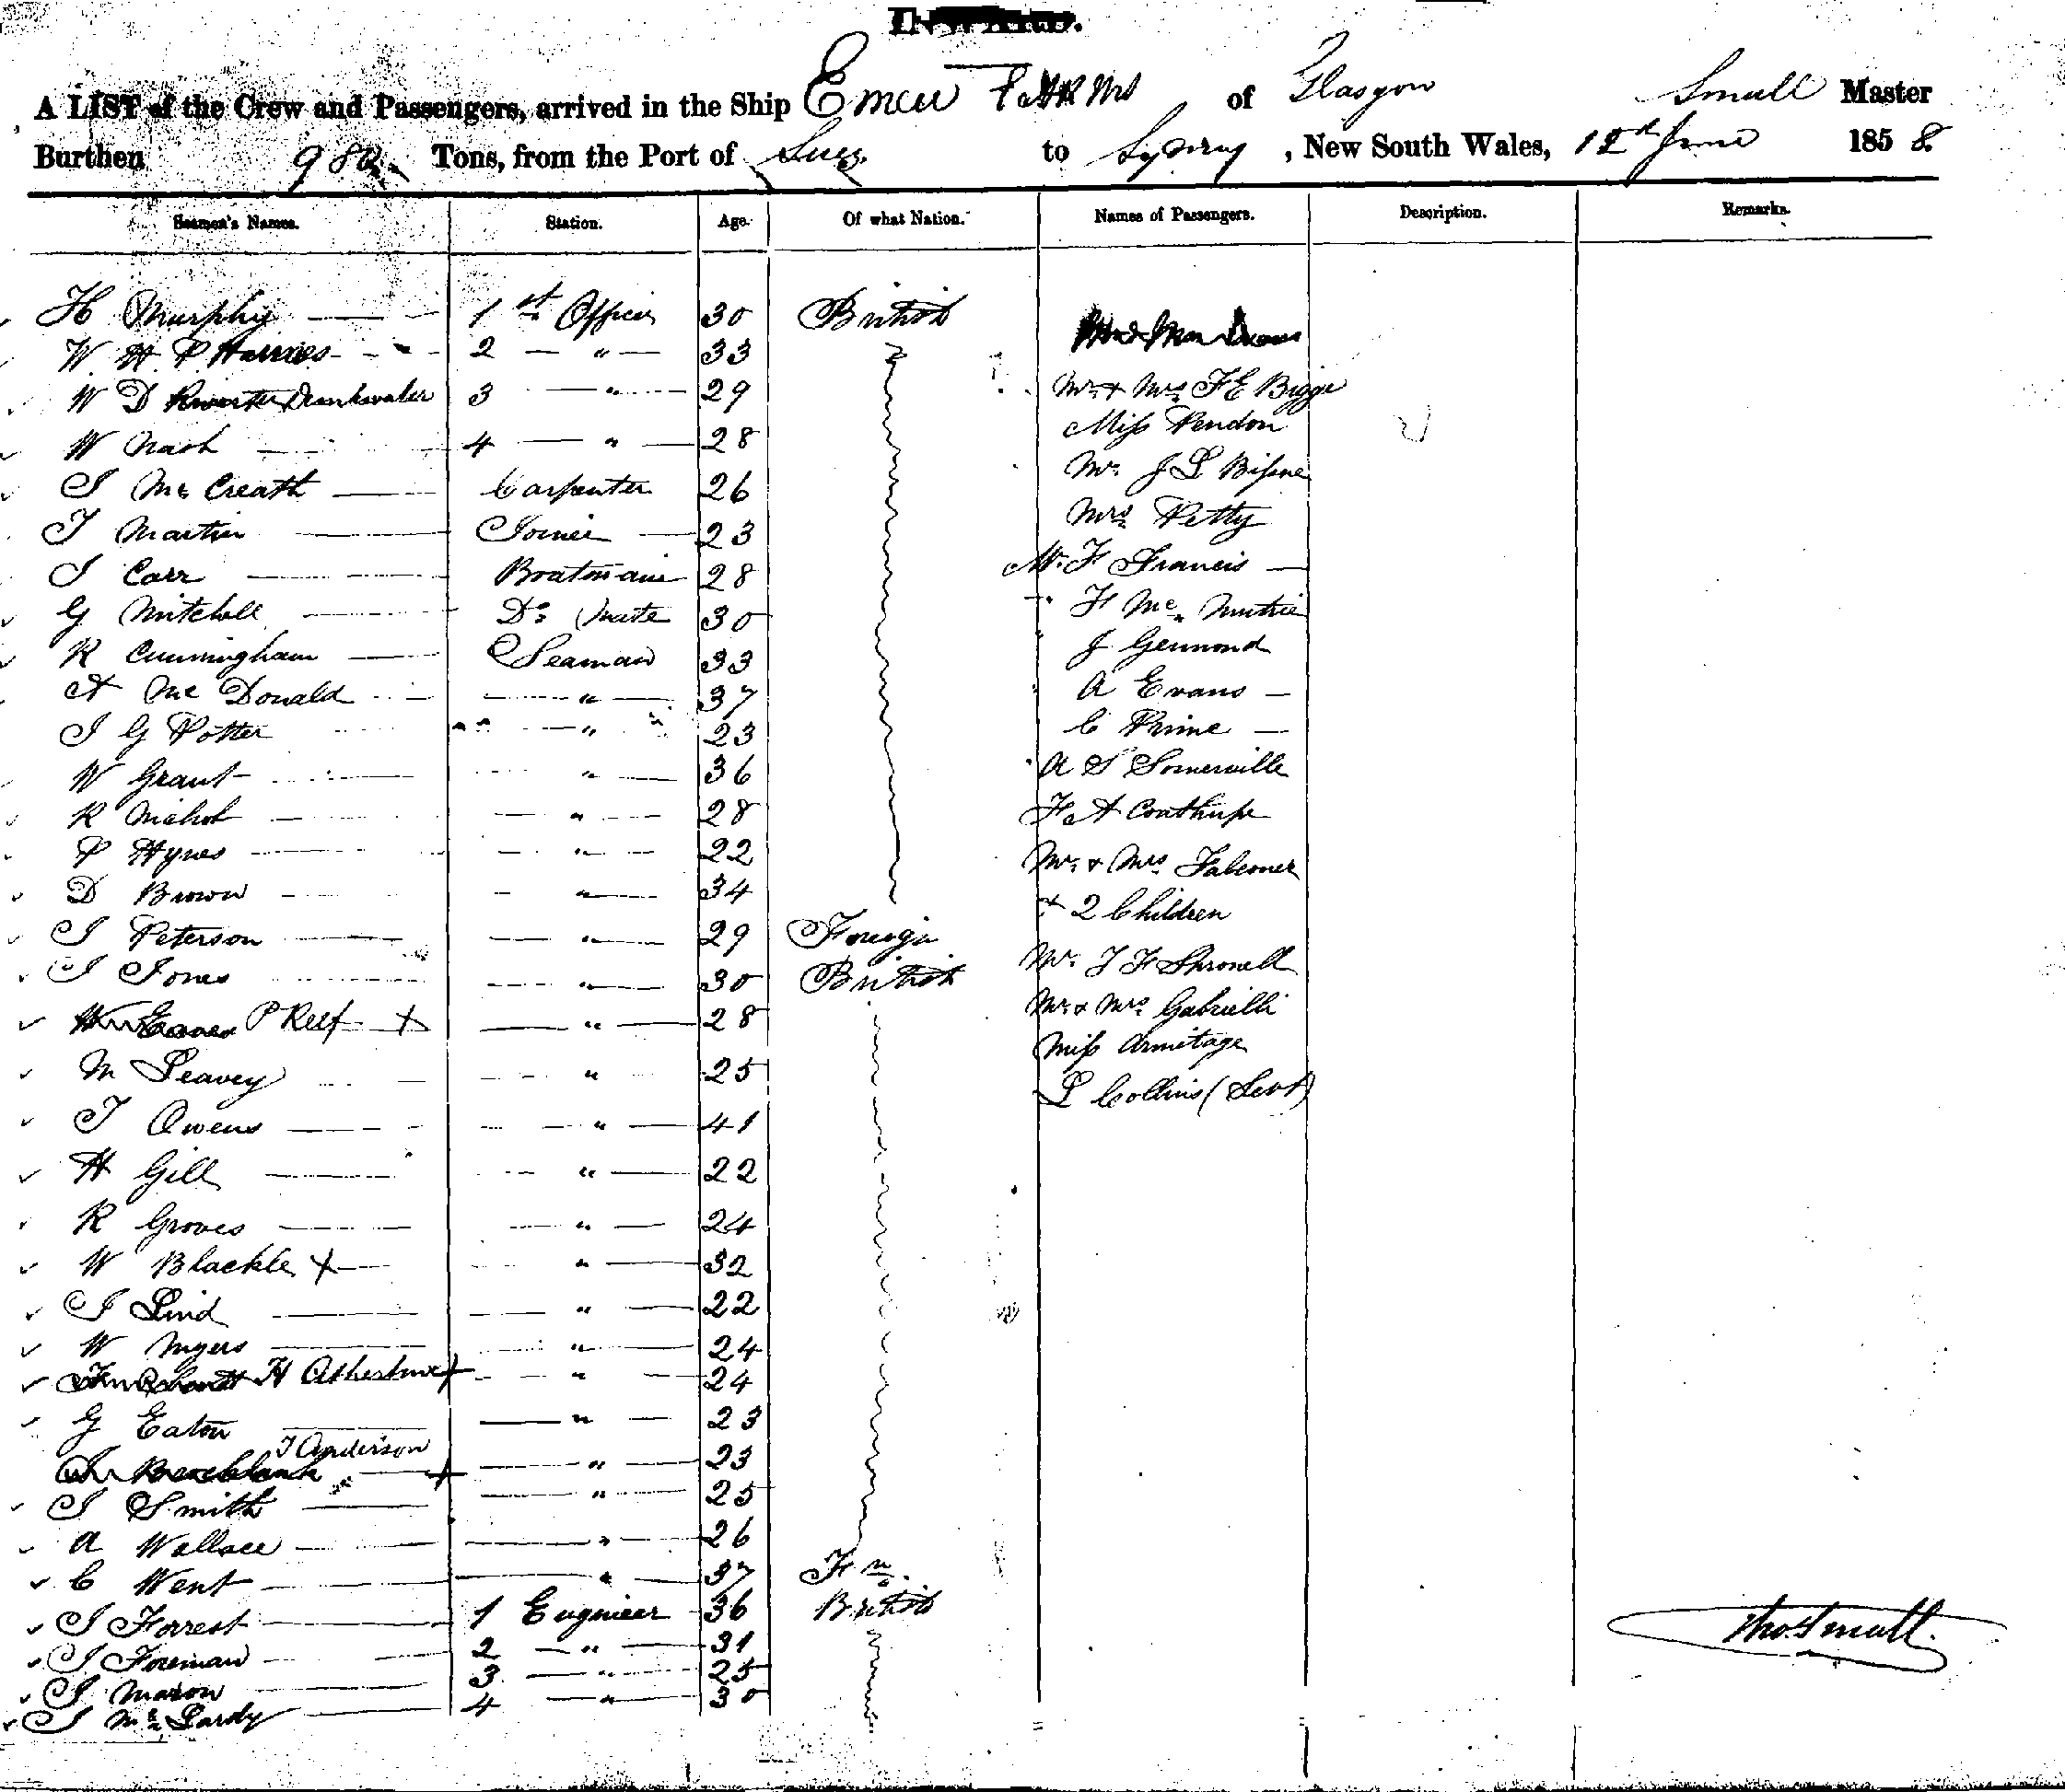 A LIST of the Crew and Passengers, arrived in the Ship Emeu of Glasgow Small Master
Burthen Tons, from the Port of Suez to Sydney, New South Wales, 12th June 1858
Seamen's Names. Station. Age. Of what Nation. Names of Passengers. Description. Remarks.
H Murphy 1st Officer 30 British
W H P Harries 2 " 33
W D Drinkwater 3 " 29 Mr & Mrs F E Bigge
W Nash 4 " 28 Miss Rendon
J Mc Creath Carpenter 26 Mr J L
T Martin Joiner 23 Mrs Petty
J Carr Boatswain 28 Mr F Francis
G Mitchell Do Mate 30 F Mc
R Cunningham Seaman 33 J
A Mc Donald " 37 A Evans
J G Potter " 23 C Prime
W Grant " 36 A S Somerville
R Nichol " 28 F A Coathupe
P Hynes " 22 Mr & Mrs Falconer
D Brown " 34 & 2 Children
J Peterson " 29 Foreign Mr
J Jones " 30 British Mr & Mrs Gabrielli
P Relf + " 28 Miss Armitage
M Leavey " 25 L Collins (Servt)
T Owens " 41
H Gill " 22
R Groves " 24
W Blackle + " 32
J Lind " 22
W Myers " 24
H + " 24
G Eaton " 23
T Anderson + " 23
J Smith " 25
A Wallace " 26
C Went " 37 Fn
J Forrest 1 Engineer 36 British
J Foreman 2 " 31
J Mason 3 " 25
J Mc Lardy 4 " 30
Thos Small.